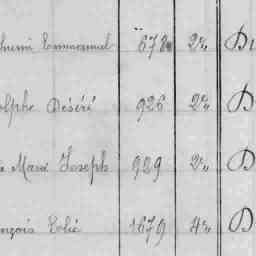 Emmanuel 678 2e D
olphe Désiré 926 2e D
Marie Joseph 929 2e D
nçois Elie 1679 4e D